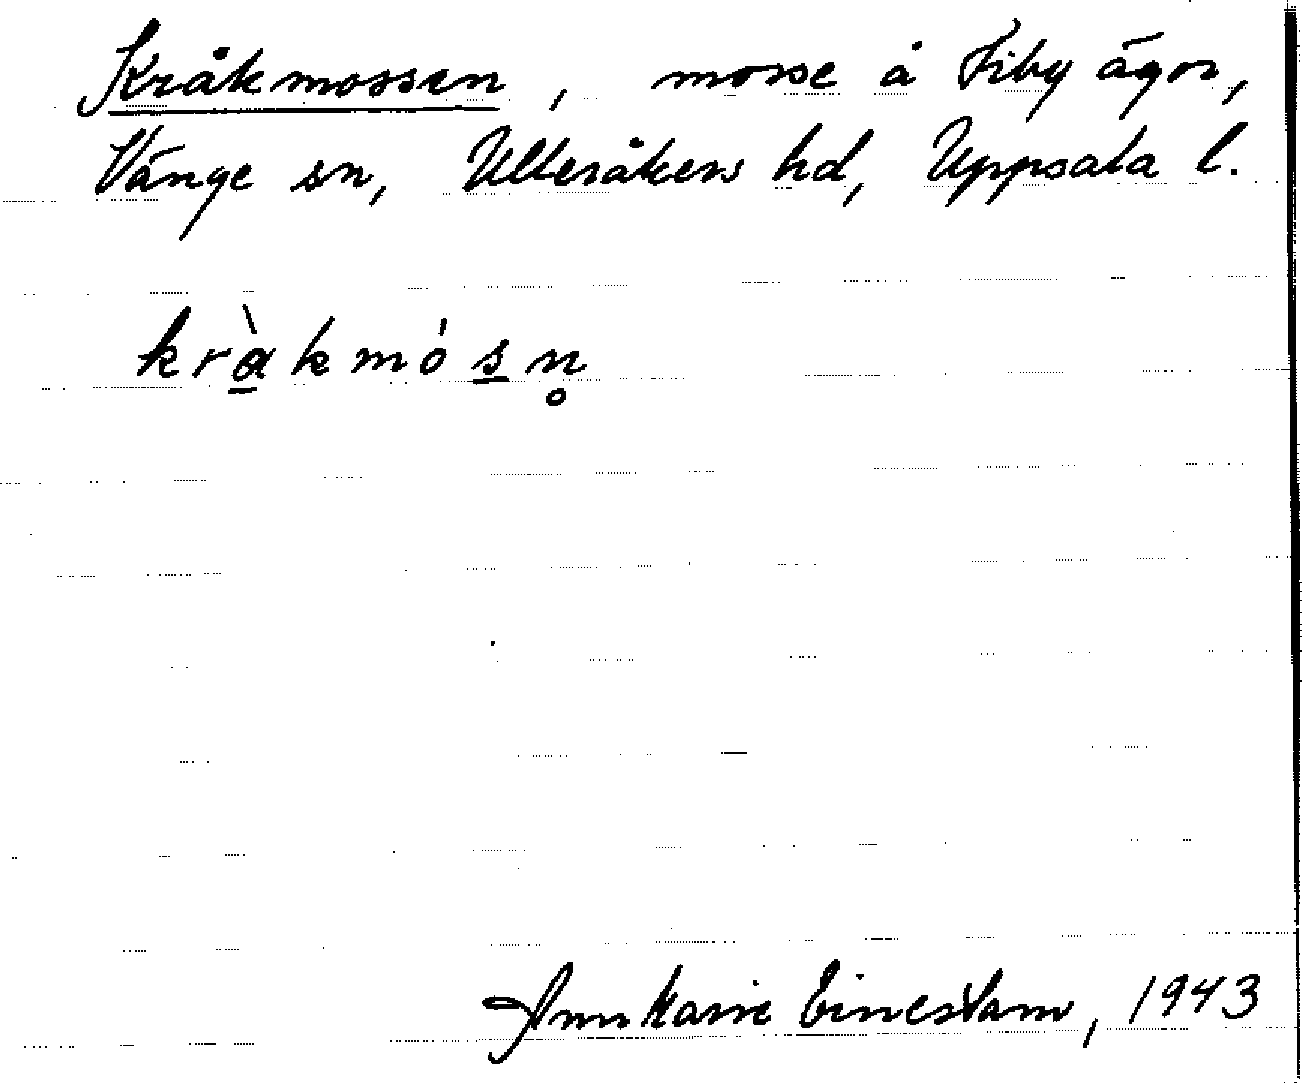 Kråkmossen, mosse å Fiby ägor,
Vänge sn, Ulleråkers hd, Uppsala l.
kràkmósn̥
Ann Marie Einestam, 1943